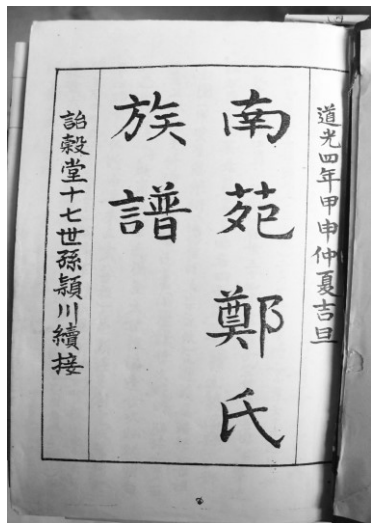 道光四年甲申仲夏吉旦
南苑鄭氏
族譜
詒榖堂十七世孫穎川續接